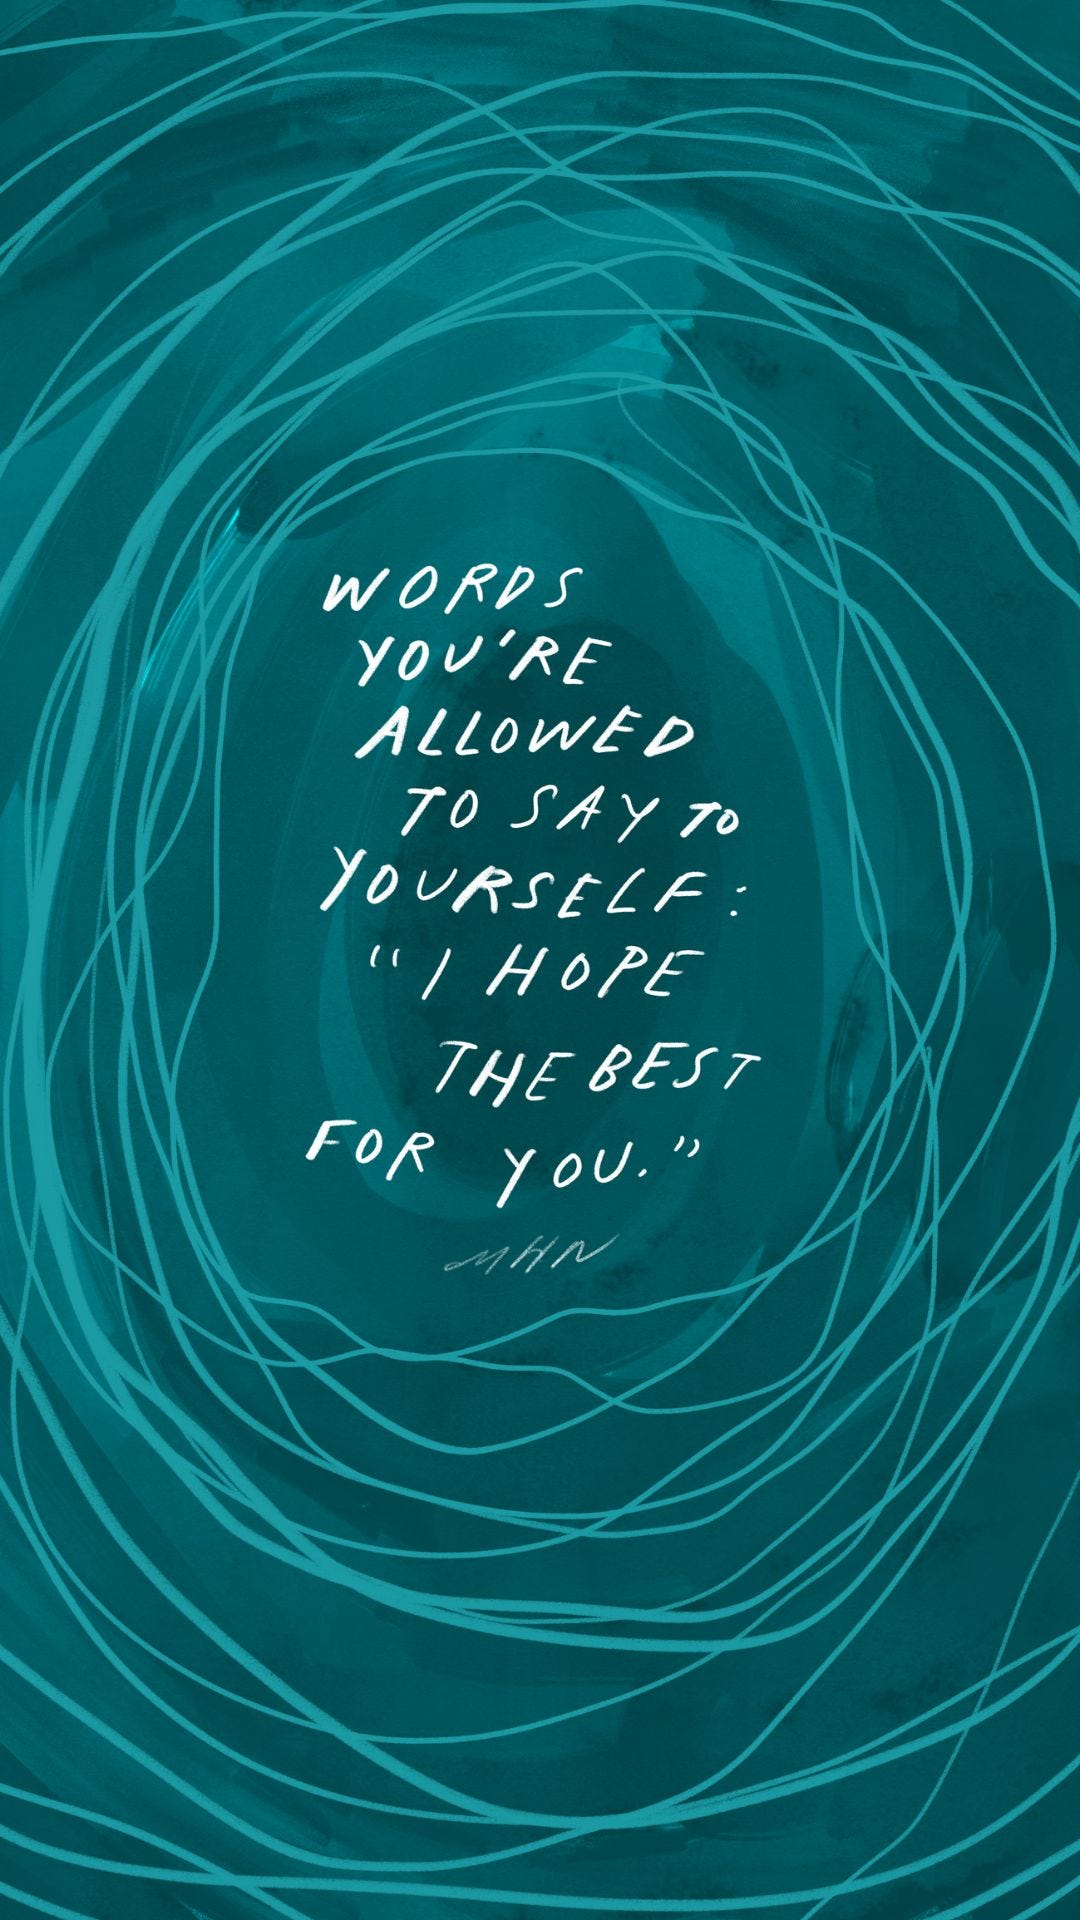 WORDS
YOU'RE
ALLOWED
TO SAY TO
YOURSELF:
"I HOPE
THE BEST
FOR YOU."
MHN